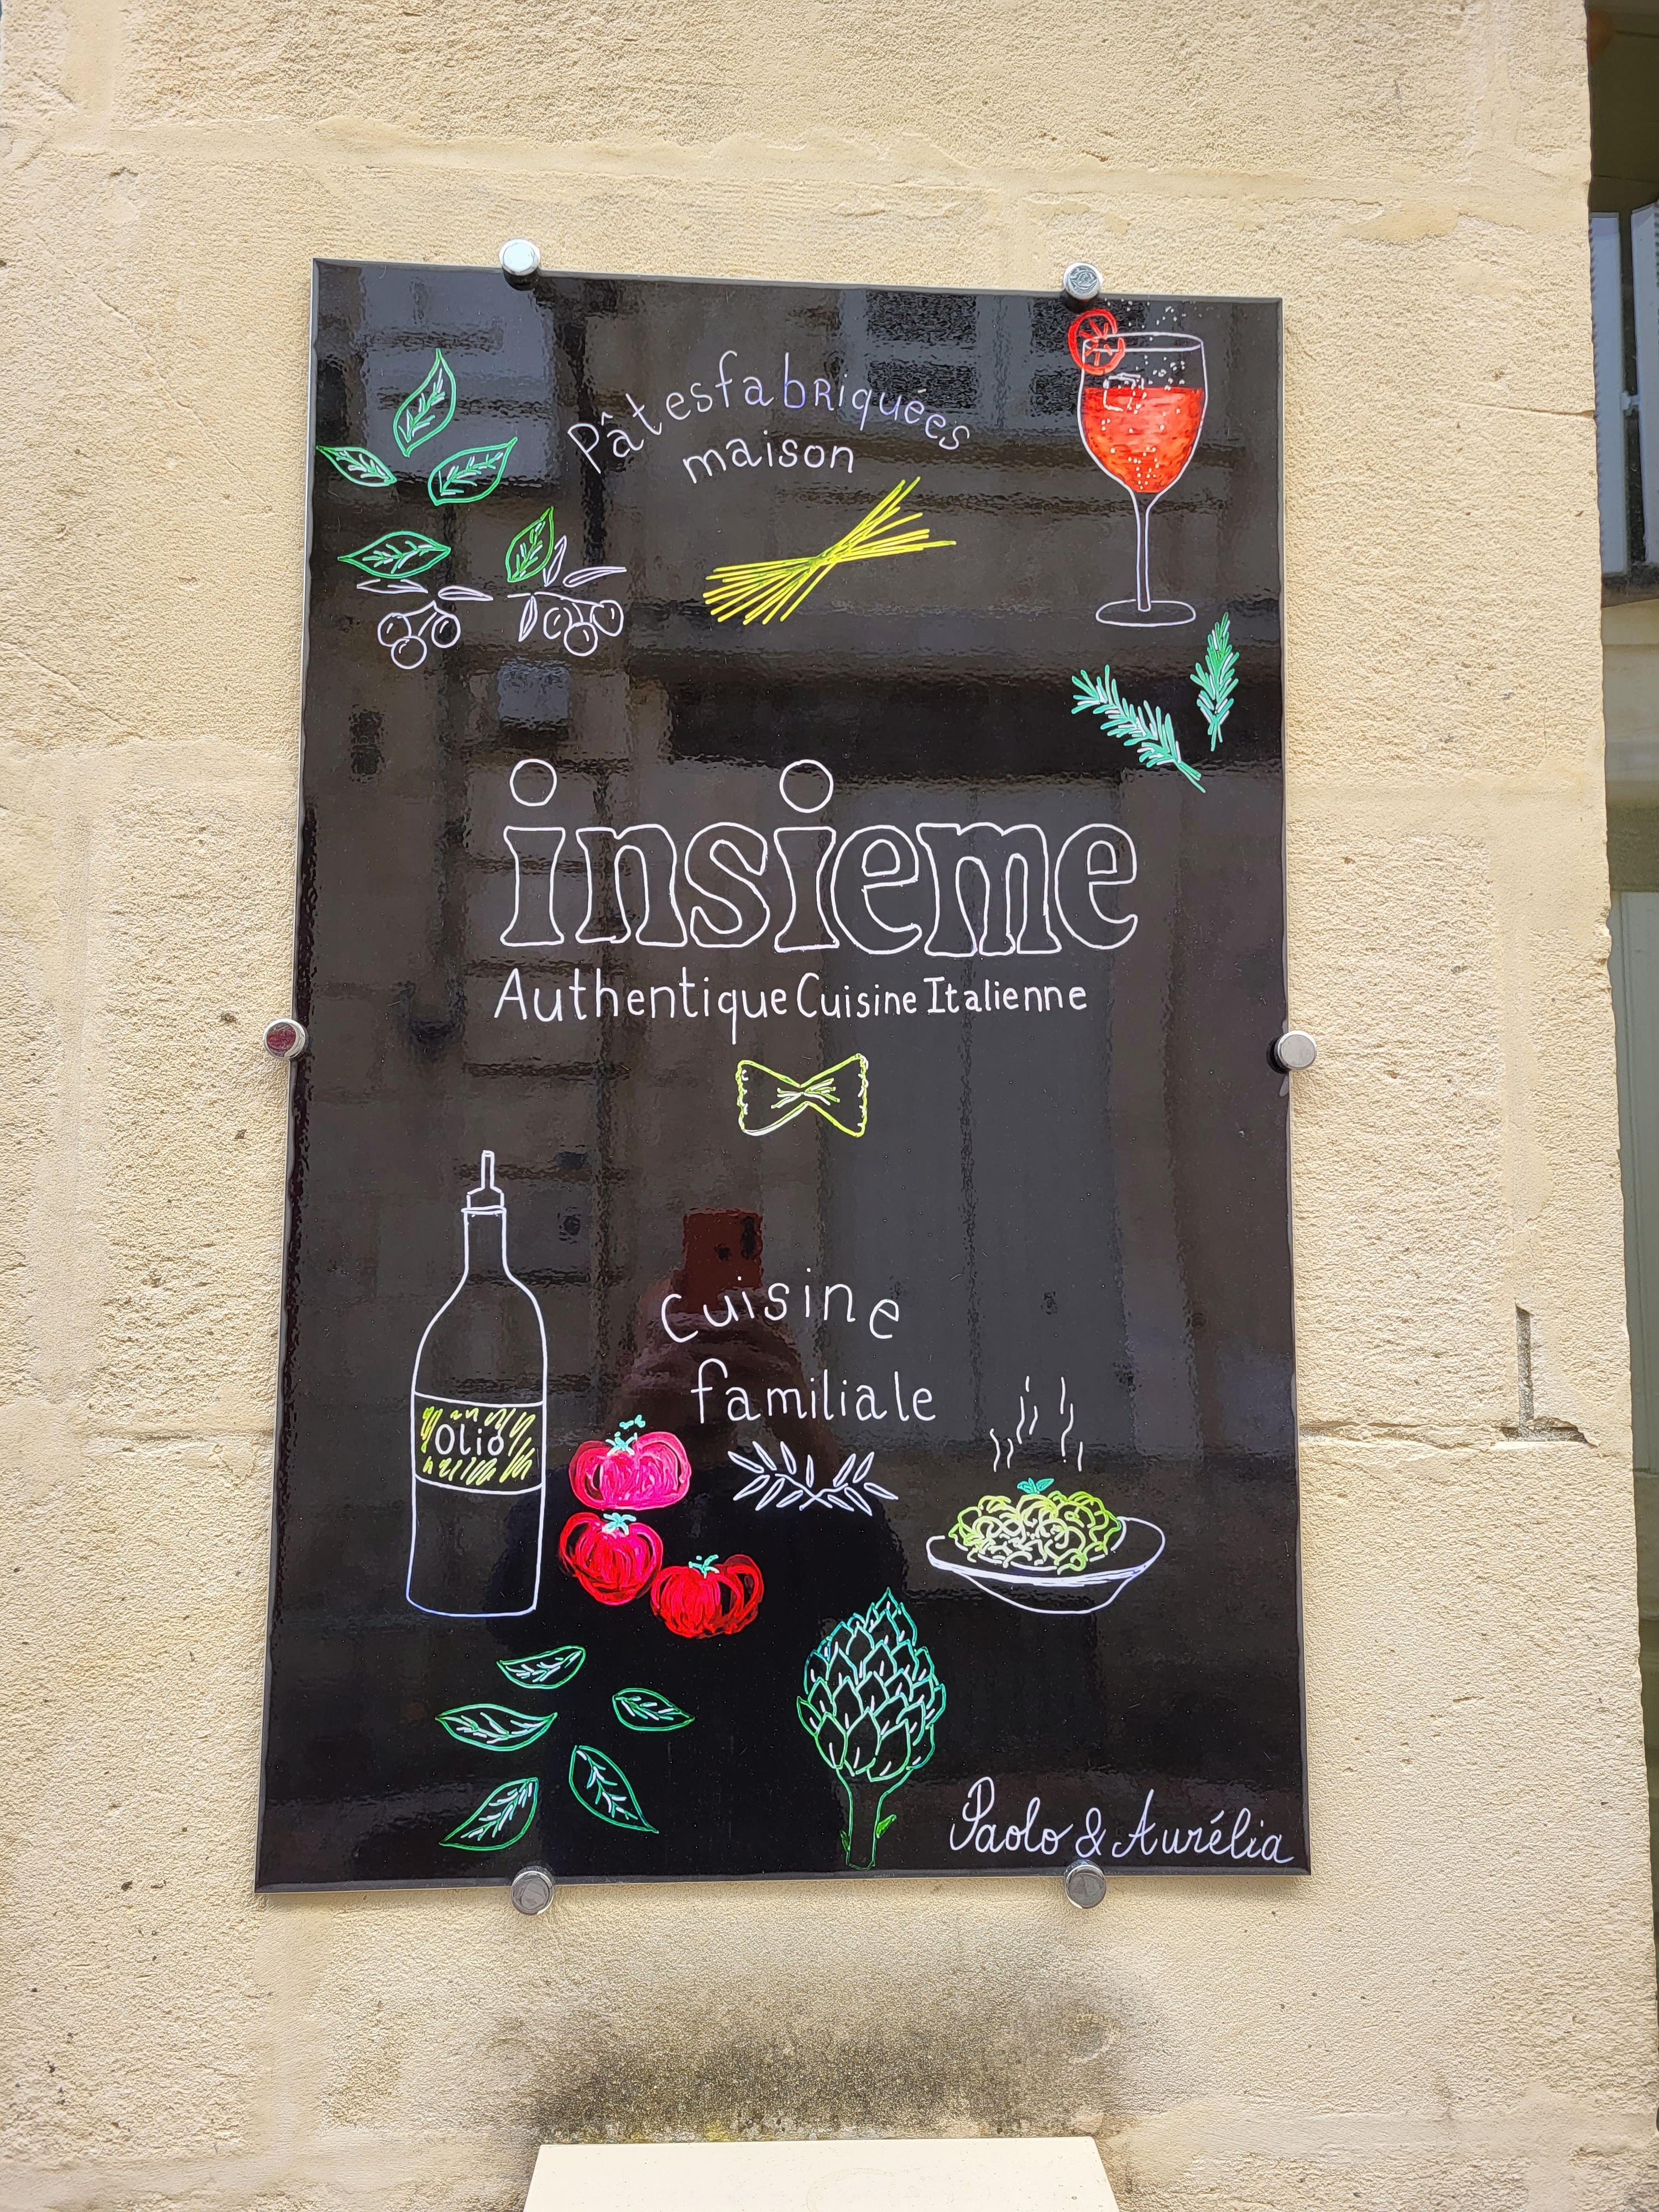 Pâtes fabriquées
maison
insieme
Authentique Cuisine Italienne
Cuisine
familiale
Olio
Paolo & Aurélia